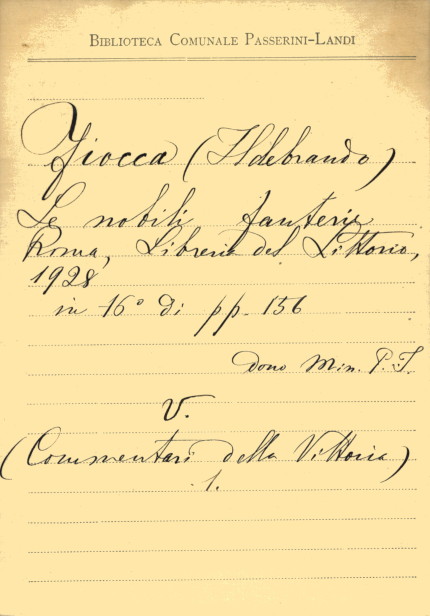 Biblioteca Comunale Passerini-Landi
Fiocca (Ildebrando)
Le nobili fanterie
Roma, Libreria del Littorio,
1928
in 16° di pp. 156
dono Min. P. I.
V.
(Commentari della Vittoria)
1.